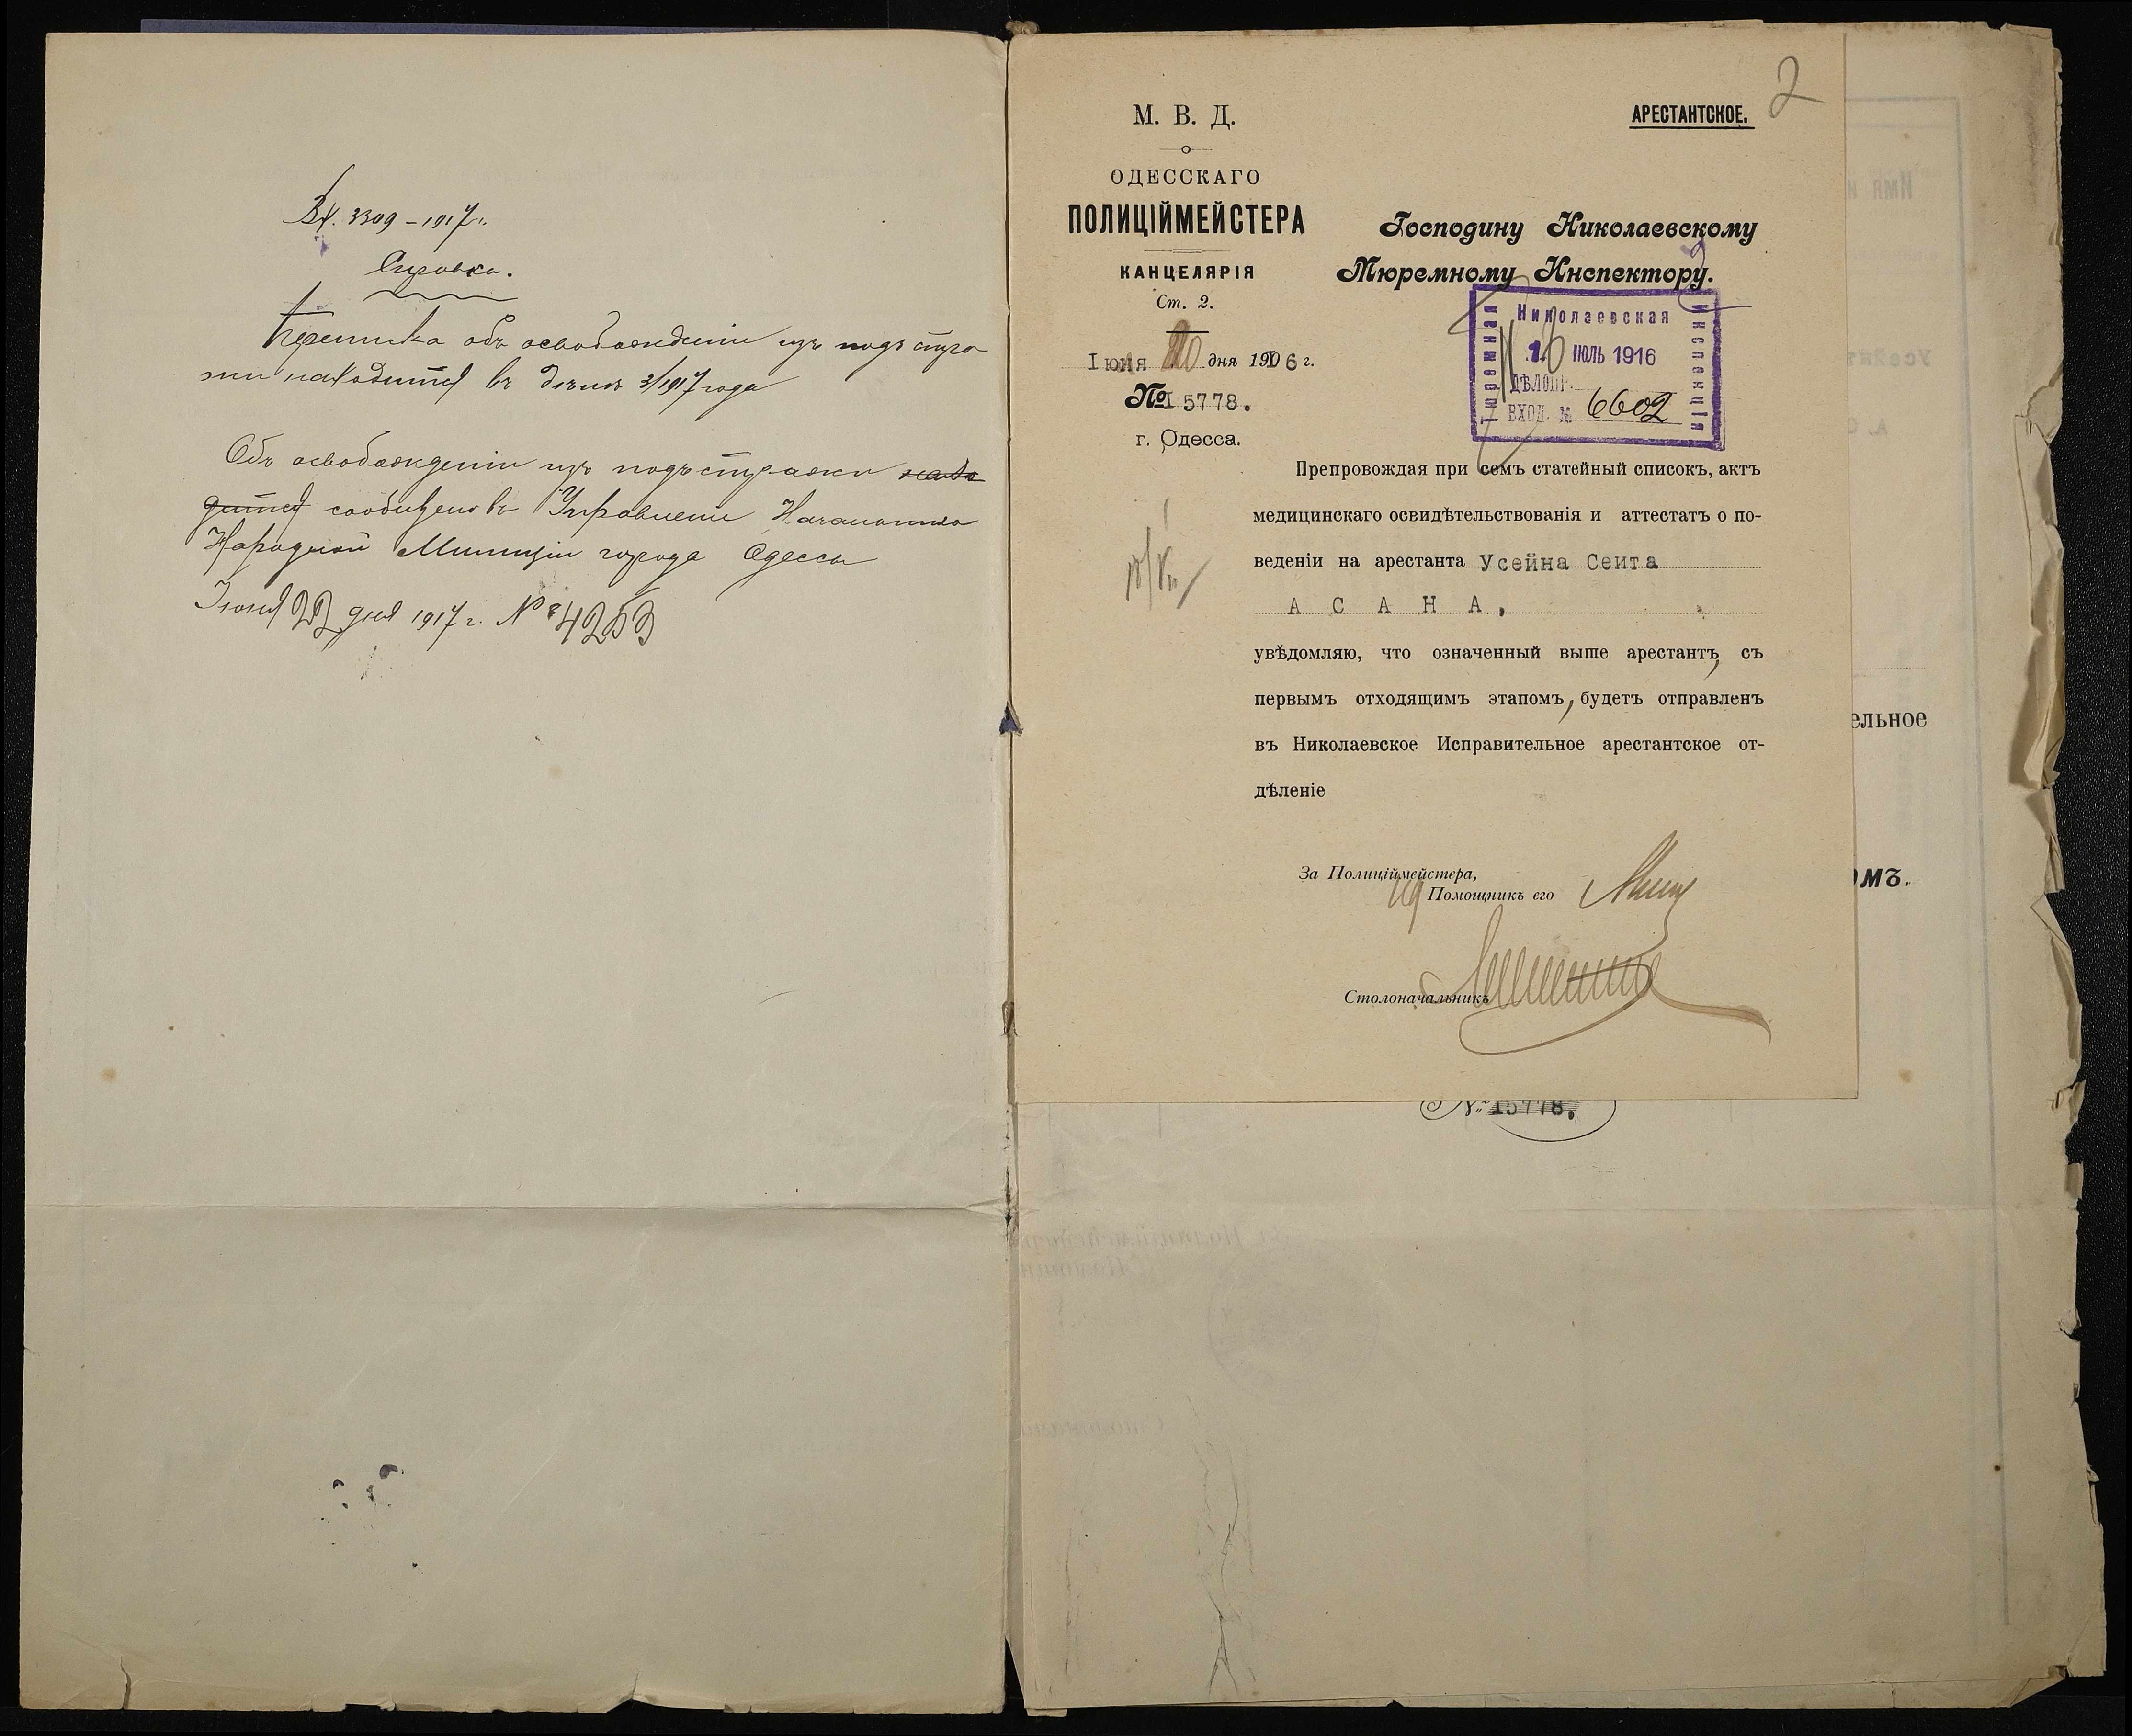 Вх. 3309 – 1917 г.
Справка.
Переписка объ освобожденіи изъ подъ стра
жи находится въ дѣлѣ 3/1917 года
Объ освобожденіи изъ подъ стражи нахо
дится сообщено въ Управленіе Начальника
Народной Милиціи города Одессы
Іюня 22 дня 1917 г. № 4253
2
М. В. Д.
ОДЕССКАГО
ПОЛИЦІЙМЕЙСТЕРА
КАНЦЕЛЯРІЯ
Ст. 2.
Іюня 20 дня 1916 г.
№ 15778.
г. Одесса.
АРЕСТАНТСКОЕ.
Господину Николаевскому
Тюремному Инспектору.
Николаевская
Тюремная
Инспекція
ІЮЛЬ 1916
ДѢЛОПР.
ВХОД. № 6602
Препровождая при семъ статейный списокъ, актъ
медицинскаго освидѣтельствованія и аттестатъ о по-
веденіи на арестанта Усейна Сеита
АСАНА,
увѣдомляю, что означенный выше арестантъ, съ
первымъ отходящимъ этапомъ, будетъ отправленъ
въ Николаевское Исправительное арестантское от-
дѣленіе
За Полиціймейстера,
Помощникъ его
Столоначальникъ
№ 15778.
ельное
омъ.